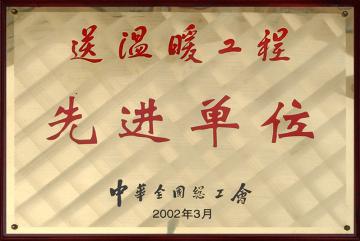 送溫暖工程
先进单位
中華全國總工會
2002年3月